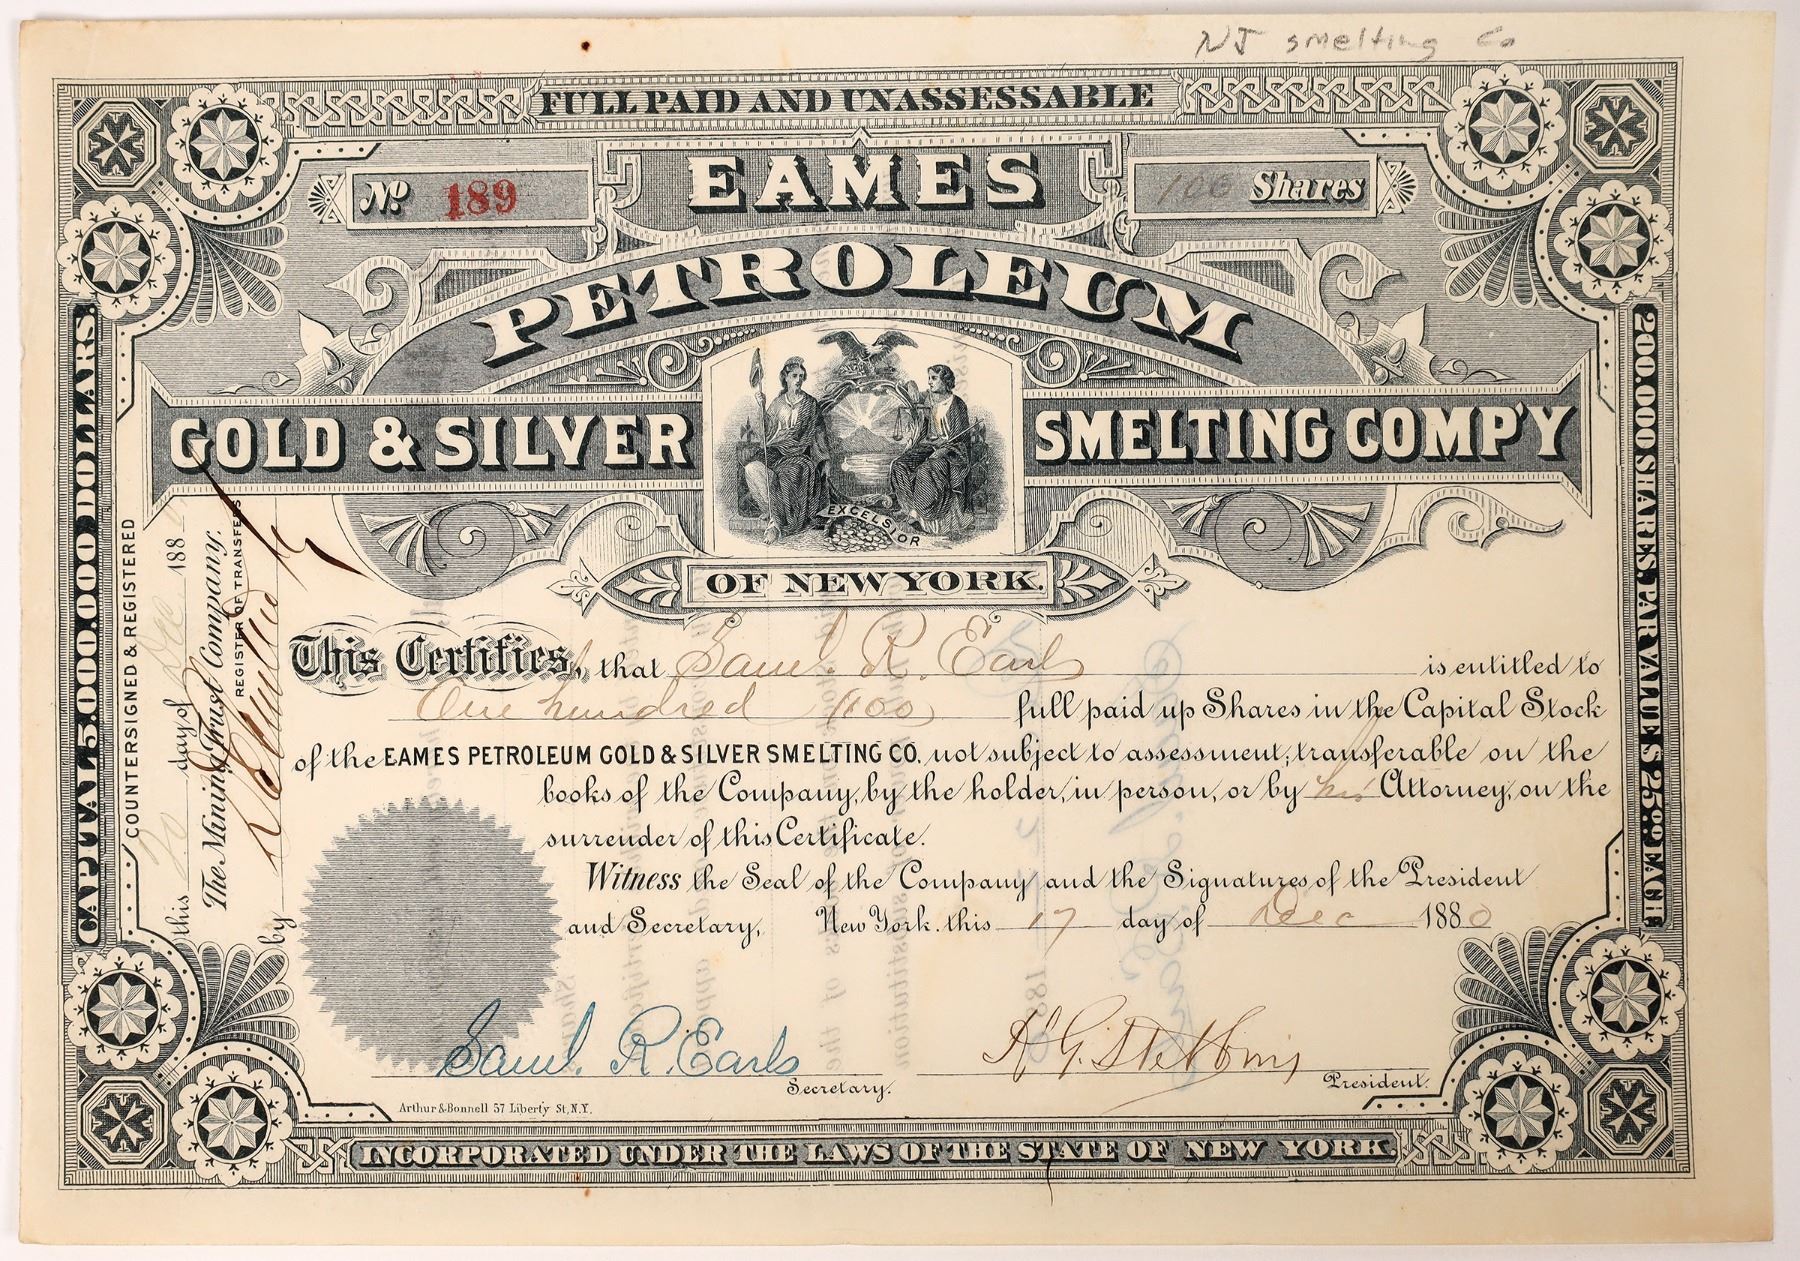 NJ smelting Co
FULL PAID AND UNASSESSABLE
No. 189
EAMES
100 Shares
PETROLEUM
GOLD & SILVER SMELTING COMP'Y
EXCELSIOR
OF NEW YORK.
CAPITAL 5,000,000 DOLLARS.
200,000 SHARES, PAR VALUE $ 25 00 EACH
COUNTERSIGNED & REGISTERED
this 20 day of Dec 188
The Mining Trust Company.
REGISTER OF TRANSFERS
by
This Certifies, that Saml. R. Earls is entitled to
One hundred (100) full paid up Shares in the Capital Stock
of the EAMES PETROLEUM GOLD & SILVER SMELTING CO. not subject to assessment; transferable on the
books of the Company, by the holder, in person, or by his Attorney, on the
surrender of this Certificate.
Witness the Seal of the Company and the Signatures of the President
and Secretary, New York. this 17 day of Dec 1880
Saml. R. Earls Secretary.
H G. Stebbins President.
Arthur & Bonnell 57 Liberty St, N.Y.
INCORPORATED UNDER THE LAWS OF THE STATE OF NEW YORK.